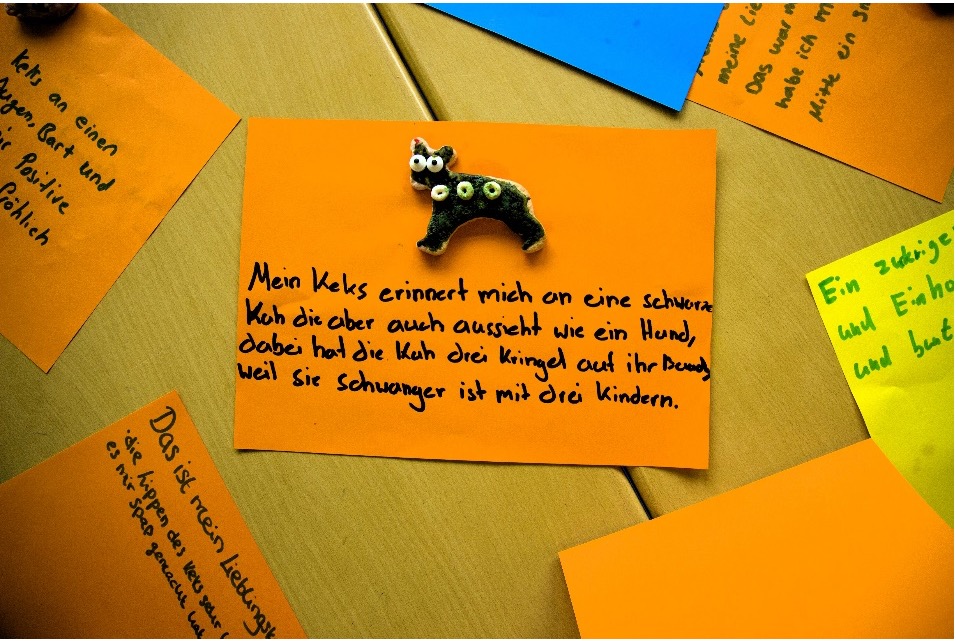 Keks an einen
Augen, Bart und
Positive
fröhlich
meine Lie
Das war m
habe ich m
Mitte ein
Mein Keks erinnert mich an eine schwarze
Kuh die aber auch aussieht wie ein Hund,
dabei hat die Kuh drei Kringel auf ihr
weil sie schwanger ist mit drei Kindern.
Ein zukrige
und Einho
und bunt
Das ist mein Lieblingsk
die Lippen des Keks sehr
es mir spaß gemacht hat